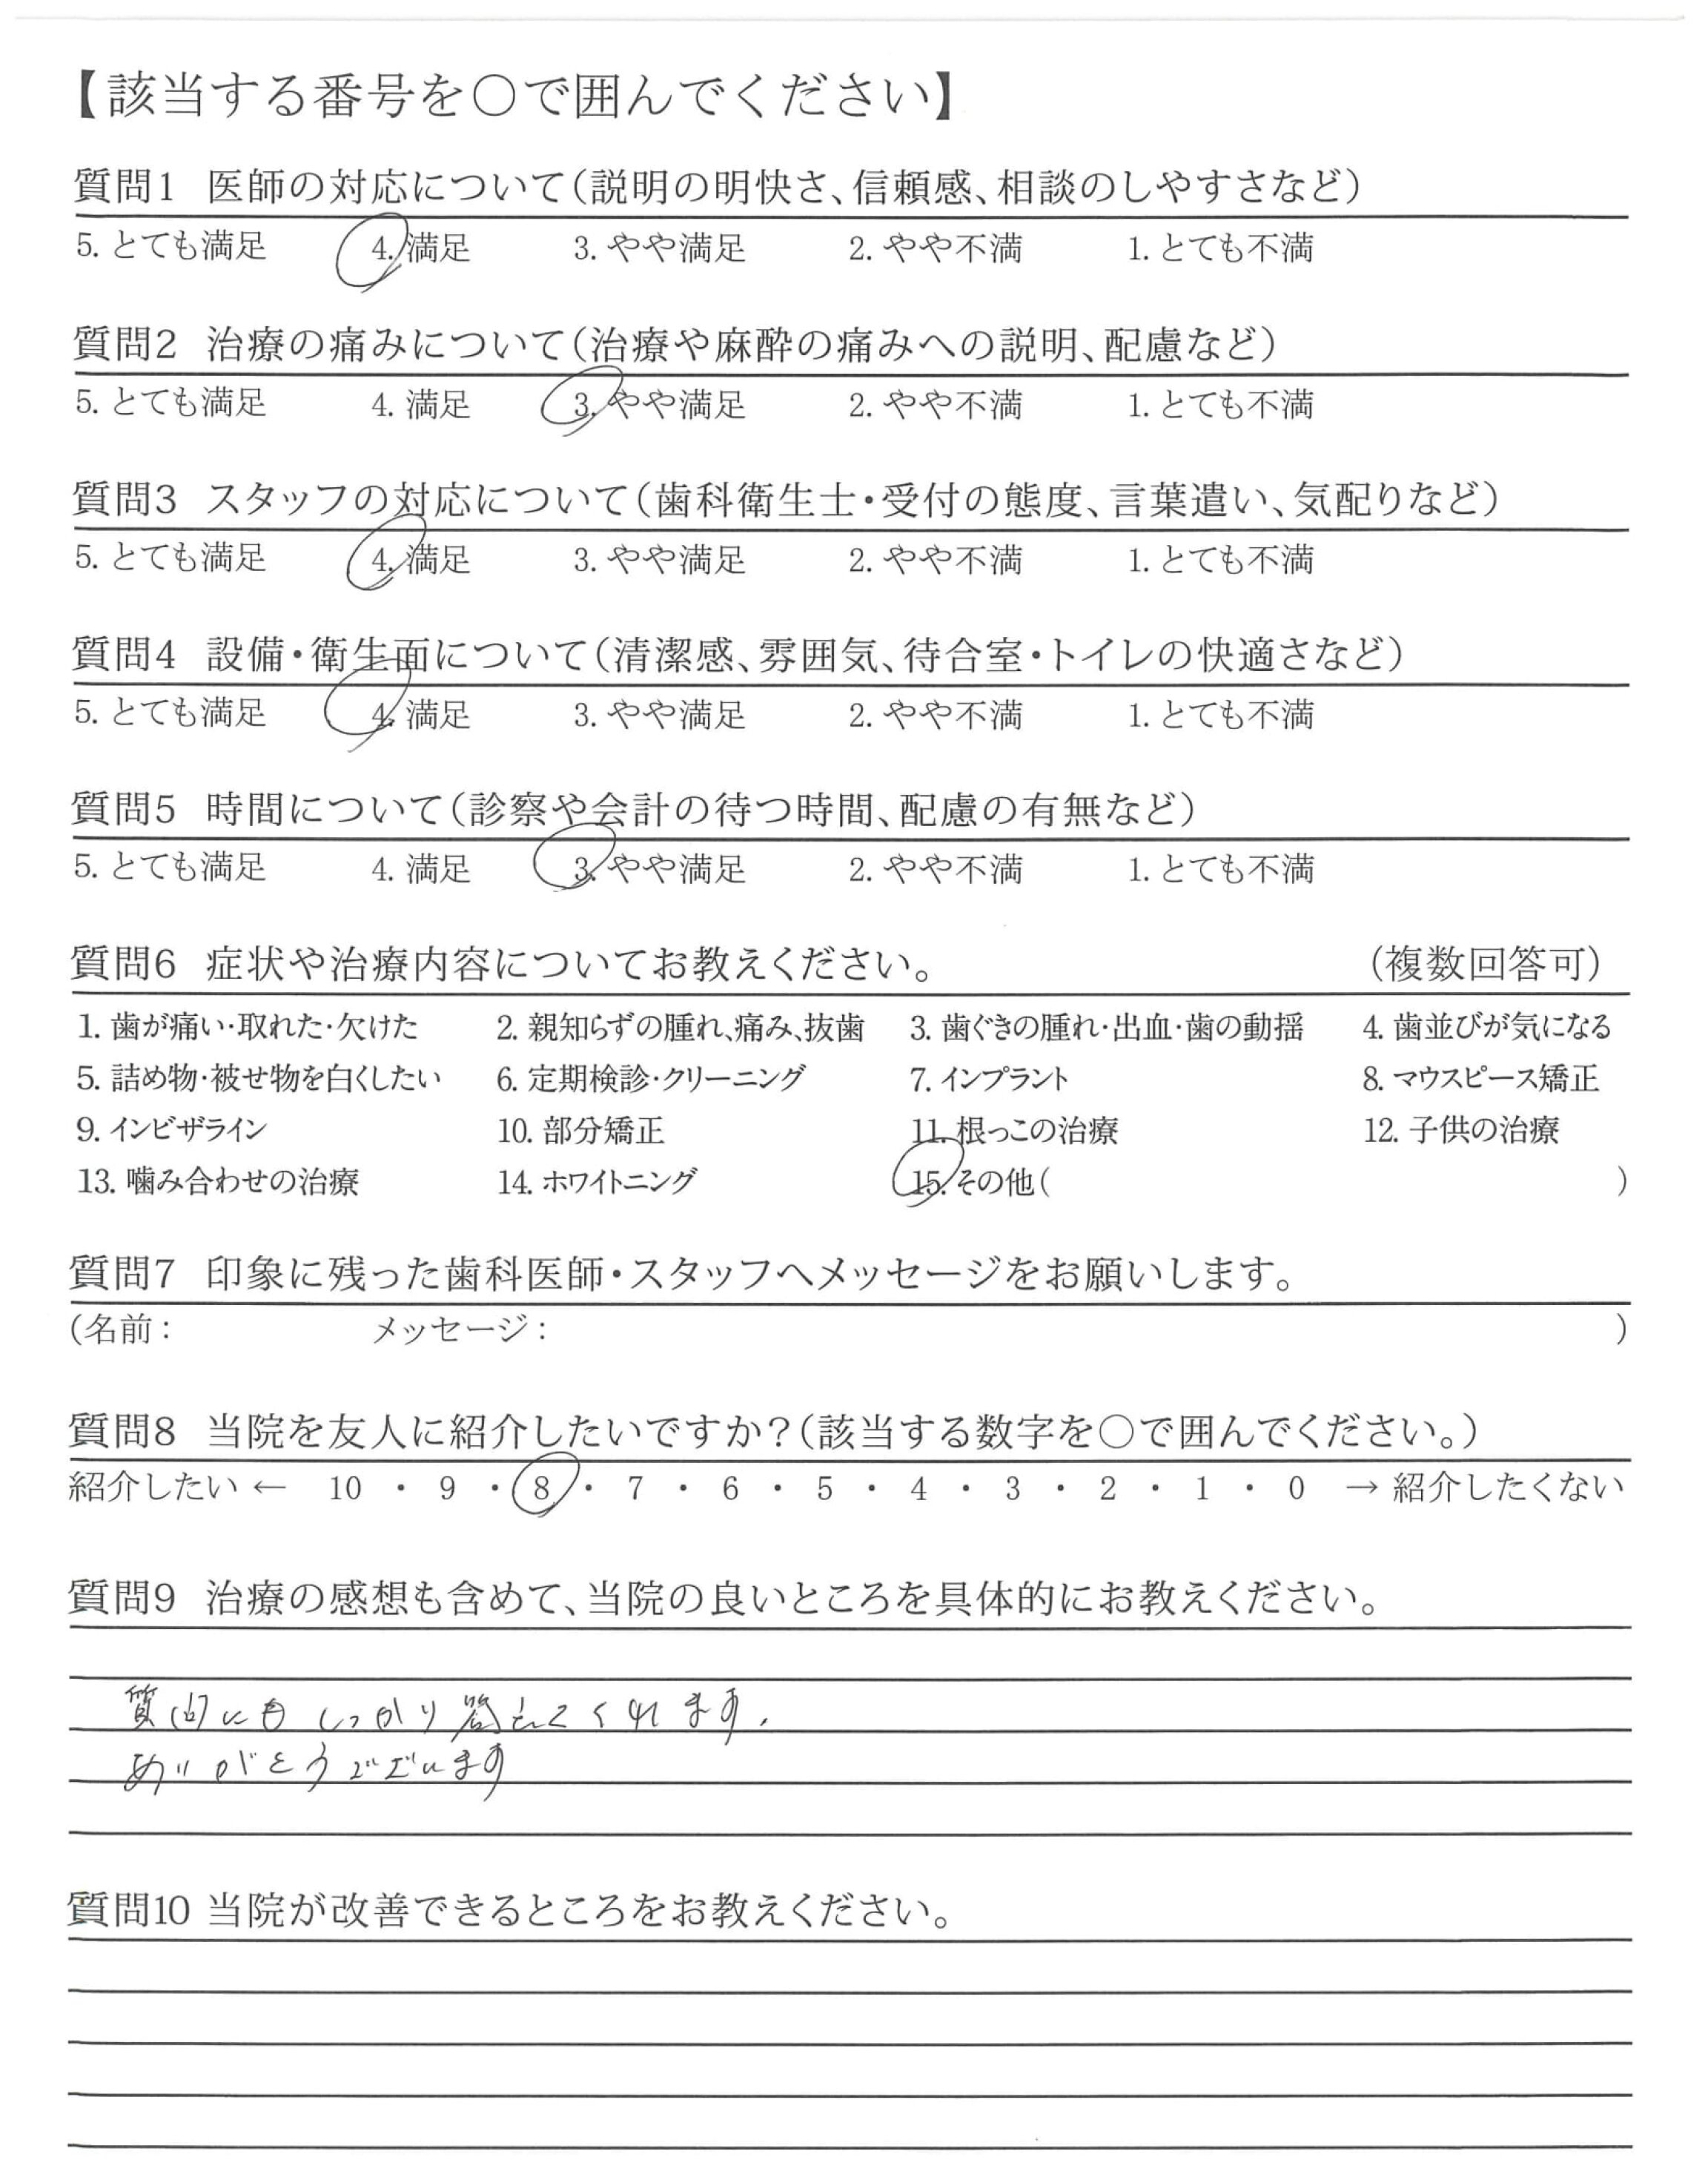 【該当する番号を○で囲んでください】
質問1 医師の対応について(説明の明快さ、信頼感、相談のしやすさなど)
5. とても満足 4. 満足 3. やや満足 2. やや不満 1. とても不満
質問2 治療の痛みについて(治療や麻酔の痛みへの説明、配慮など)
5. とても満足 4. 満足 3. やや満足 2. やや不満 1. とても不満
質問3 スタッフの対応について(歯科衛生士・受付の態度、言葉遣い、気配りなど)
5. とても満足 4. 満足 3. やや満足 2. やや不満 1. とても不満
質問4 設備・衛生面について(清潔感、雰囲気、待合室・トイレの快適さなど)
5. とても満足 4. 満足 3. やや満足 2. やや不満 1. とても不満
質問5 時間について(診察や会計の待つ時間、配慮の有無など)
5. とても満足 4. 満足 3. やや満足 2. やや不満 1. とても不満
質問6 症状や治療内容についてお教えください。 (複数回答可)
1. 歯が痛い・取れた・欠けた 2. 親知らずの腫れ、痛み、抜歯 3. 歯ぐきの腫れ・出血・歯の動揺 4. 歯並びが気になる
5. 詰め物・被せ物を白くしたい 6. 定期検診・クリーニング 7. インプラント 8. マウスピース矯正
9. インビザライン 10. 部分矯正 11. 根っこの治療 12. 子供の治療
13. 噛み合わせの治療 14. ホワイトニング 15. その他( )
質問7 印象に残った歯科医師・スタッフへメッセージをお願いします。
(名前: メッセージ: )
質問8 当院を友人に紹介したいですか?(該当する数字を○で囲んでください。)
紹介したい ← 10 ・ 9 ・ 8 ・ 7 ・ 6 ・ 5 ・ 4 ・ 3 ・ 2 ・ 1 ・ 0 → 紹介したくない
質問9 治療の感想も含めて、当院の良いところを具体的にお教えください。
質問にもしっかり答えてくれます.
ありがとうございます
質問10 当院が改善できるところをお教えください。